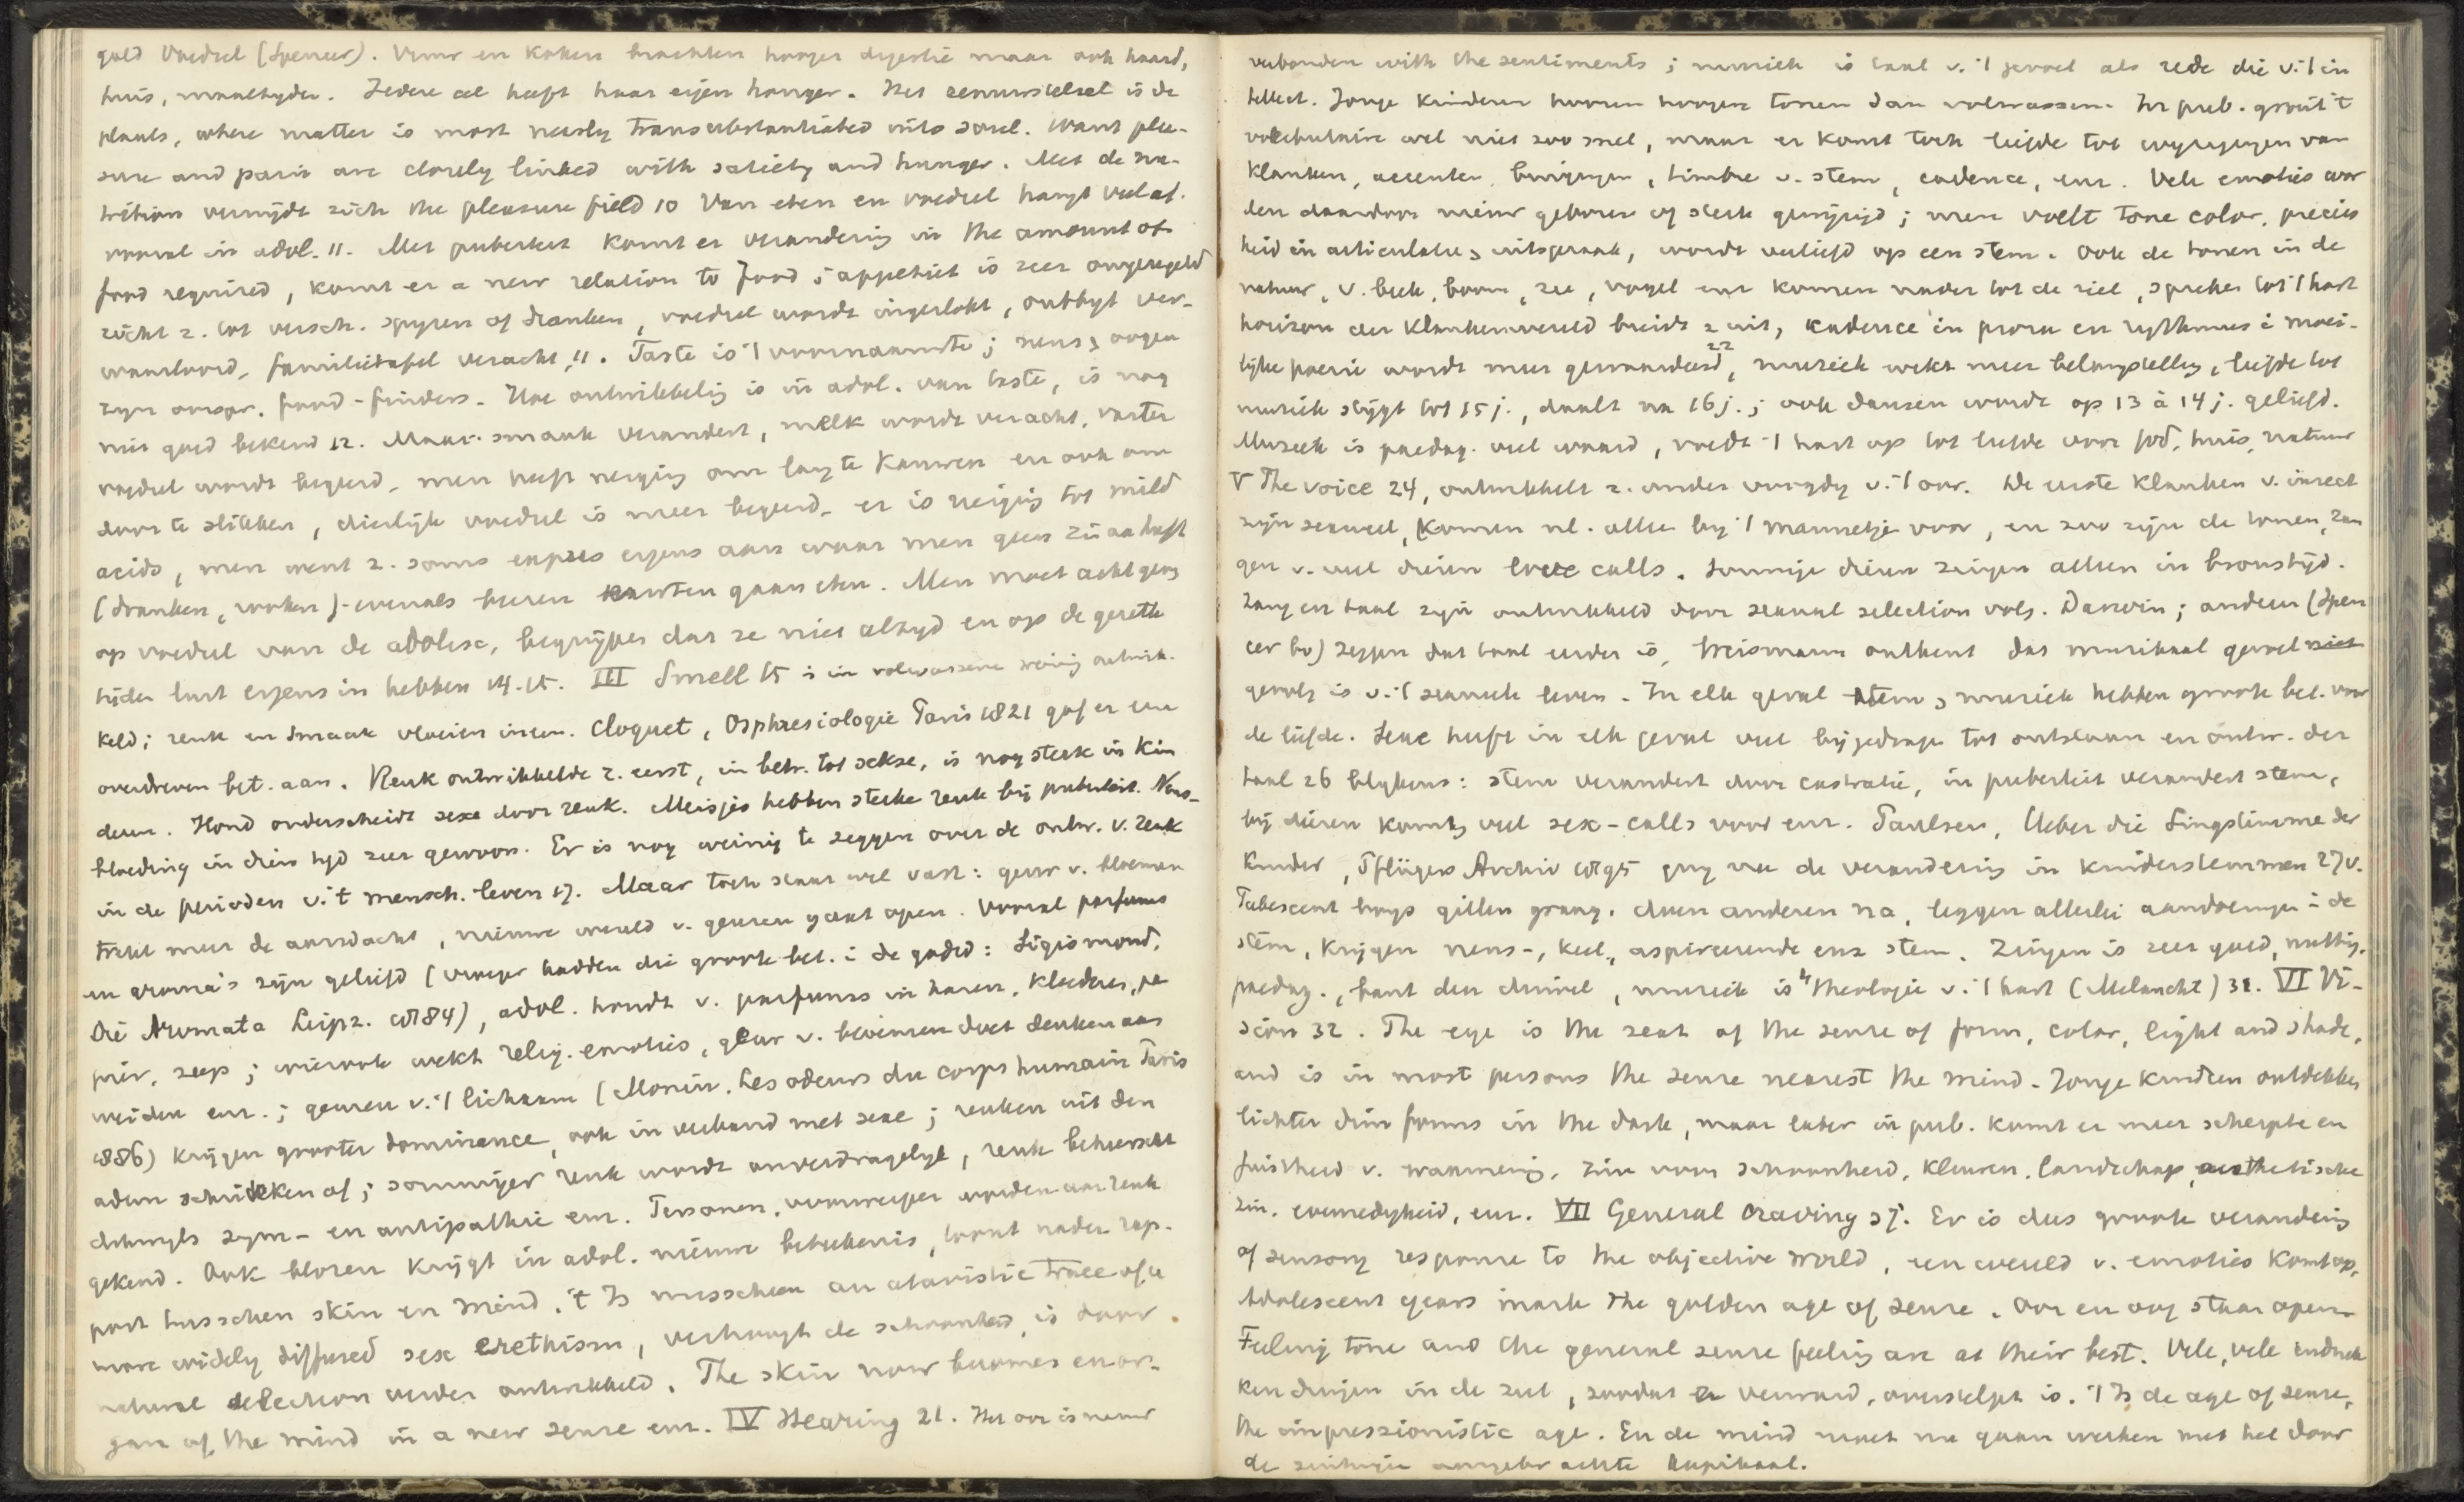 goed voedsel (Spencer). Vuur en koken brachten hooger digestie maar ook haard,
huis, maaltijden. Iedere cel heeft haar eigen honger. Het zenuwstelsel is de
plants, where matter is most nearly transubstantiated into soul. Want plea-
sure and pain are closely linked with satiety and hunger. Met de nu-
trition verwijdt zich the pleasure field 10 Van eten en voedsel hangt veel af.
vooral in adol. 11. Met puberteit komt er verandering in the amount of
food required, komt er a new relation to food; appetiet is zeer ongeregeld
richt z. tot versch. spijzen of dranken, voedsel wordt ingeslokt, ontbijt ver-
waarloosd, familietafel veracht, 11. Taste is 't voornaamste; neus & oogen
zijn oorspr. food-finders. Hoe ontwikkeling is in adol. van taste, is nog
niet goed bekend 12. Maar smaak verandert, melk wordt veracht, vaster
voedsel wordt begeerd, men heeft neiging om lang te kauwen en ook om
door te slikken, dierlijk voedsel is meer begeerd, er is neiging tot mild
acids, men went z. soms expres ergens aan waar men geen zin aan heeft
(dranken, rooken)- evenals heeren korsten gaan eten. Men moet acht geven
op voedsel van de adolesc, begrijpen dat ze niet altijd en op de gezette
tijden lust ergens in hebben 14-15. III Smell 15 is in volwassene weinig ontwik-
keld; reuk en smaak vloeien ineen. Cloquet, Osphresiologie Paris 1821 gaf er een
overdreven bet. aan. Reuk ontwikkelde z. eerst, in betr. tot sekse, is nog sterk in kin
deren. Hond onderscheidt sexe door reuk. Meisjes hebben sterke reuk bij puberteit. Neus-
bloeding in dien tijd zeer gewoon. Er is nog weinig te zeggen over de ontw. v. reuk
in de perioden v. 't mensch. leven 17. Maar toch staat wel vast: geur v. bloemen
trekt meer de aandacht, nieuwe wereld v. geuren gaat open. Vooral parfums
en aroma's zijn geliefd (vroeger hadden die groote bet. i. de godsd: Sigismond,
Die Aromata Leipz. 1884), adol. houdt v. parfums in haren, kleederen, pa
pier, zeep; wierook wekt relig. emoties, geur v. bloemen doet denken aan
weiden enz.; geuren v. 't lichaam (Monin, Les odeurs du corps humain Paris
1886) krijgen grooter dominance, ook in verband met sexe; reuken uit den
adem schrikken af; sommiger reuk wordt onverdragelijk, reuk beheerscht
dikwijls sym- en antipathie enz. Personen, voorwerpen worden aan reuk
gekend. Ook blozen krijgt in adol. nieuwe beteekenis, toont nader rap-
port tusschen skin en mind, 't Is misschien an atavistic trace of a
more widely diffused sex erethism, verhoogt de schoonheid, is door
natural selection verder ontwikkeld. The skin now becomes enor-
gan of the mind in a new sense enz. IV Hearing 21. Het oor is nauw
verbonden with the sentiments; muziek is taal v. 't gevoel als rede die v. 't in
tellect. Jonge kinderen hooren hoogere tonen dan volwassenen. In pub. groeit 't
vocabulaire wel niet zoo snel, maar er komt toch liefde tot wijzigingen van
klanken, accenten, buigingen, timbre v. stem, cadence, enz. Vele emoties wor
den daardoor nieuw geboren of sterk gewijzigd; men voelt tone color, precies
heid in articulatie & uitspraak, wordt verliefd op een stem. Ook de tonen in de
natuur, v. beek, boom, zee, vogel enz komen nader tot de ziel, spreken tot 't hart
horizon der klankenwereld breidt z uit, kadence in proza en rythmus i moei-
lijke poezie wordt meer gewaardeerd 22, muziek wekt meer belangstelling, liefde tot
muziek stijgt tot 15 j., daalt na 16 j.; ook dansen wordt op 13 à 14 j. geliefd.
Muziek is paedag. veel waard, voedt 't hart op tot liefde voor God, huis, natuur
V The voice 24, ontwikkelt z. onder voogdij v. 't oor. De eerste klanken v. insect
zijn sexueel, komen nl. alleen bij 't mannetje voor, en zoo zijn de tonen, zan
gen v. veel dieren love calls. Sommige dieren zingen alleen in bronstijd.
Zang en taal zijn ontwikkeld door sexual selection volg. Darwin; anderen (Spen
cer bv) zeggen dat taal eerder is, Weismann ontkent dat muzikaal gevoel niet
gevolg is v. 't sexueele leven. In elk geval stem & muziek hebben groote bet. voor
de liefde. Sexe heeft in elk geval veel bijgedragen tot ontstaan en ontw. der
taal 26 blijkens: stem verandert door castratie, in puberteit verandert stem,
bij dieren komen veel sex-calls voor enz. Paulsen, Ueber die Singstimme der
Kinder, Pflügers Archiv 1895 ging na de verandering in kinderstemmen 27 v.
Pubescent boys gillen graag, doen anderen na, leggen allerlei aandoeningen i de
stem, krijgen neus-, keel-, aspireerende enz stem. Zingen is zeer goed, nuttig,
paedag., bant den duivel, muziek is "theologie v. 't hart (Melancht) 31. VI Vi-
sion 32. The eye is the seat of the sense of form, color, light and shade,
and is in most persons the sense nearest the mind. Jonge kinderen ontdekken
lichter dim forms in the dark, maar later in pub. komt er meer scherpte en
juistheid v. waarneming, zin voor schoonheid, kleuren, landschap, aesthetische
zin, evenredigheid, enz. VII General craving 37. Er is dus groote verandering
of sensory response to the objective world, een wereld v. emoties komt op,
Adolescent years mark the golden age of sense. Oor en oog staan open.
Feeling tone and the general sense feeling are at their best. Vele, vele indruk
ken dringen in de ziel, zoodat er verward, overstelpt is. 't Is de age of sense,
the impressionistic age. En de mind moet nu gaan werken met het door
de zintuigen aangebrachte kapitaal.